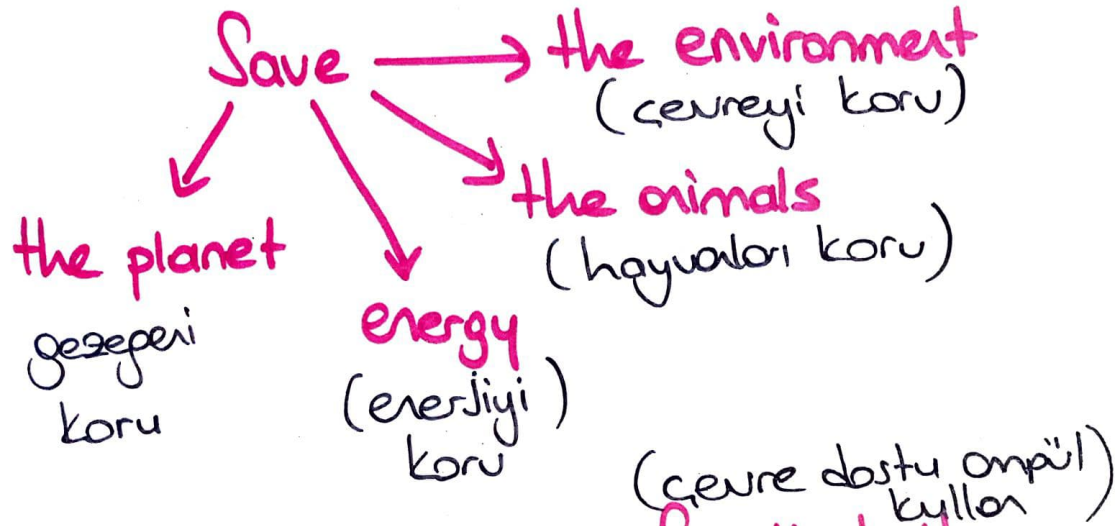 Save
the environment
(çevreyi koru)
the animals
(hayvanları koru)
the planet
gezegeni
koru
energy
(enerjiyi)
koru
(çevre dostu ampül)
kullan